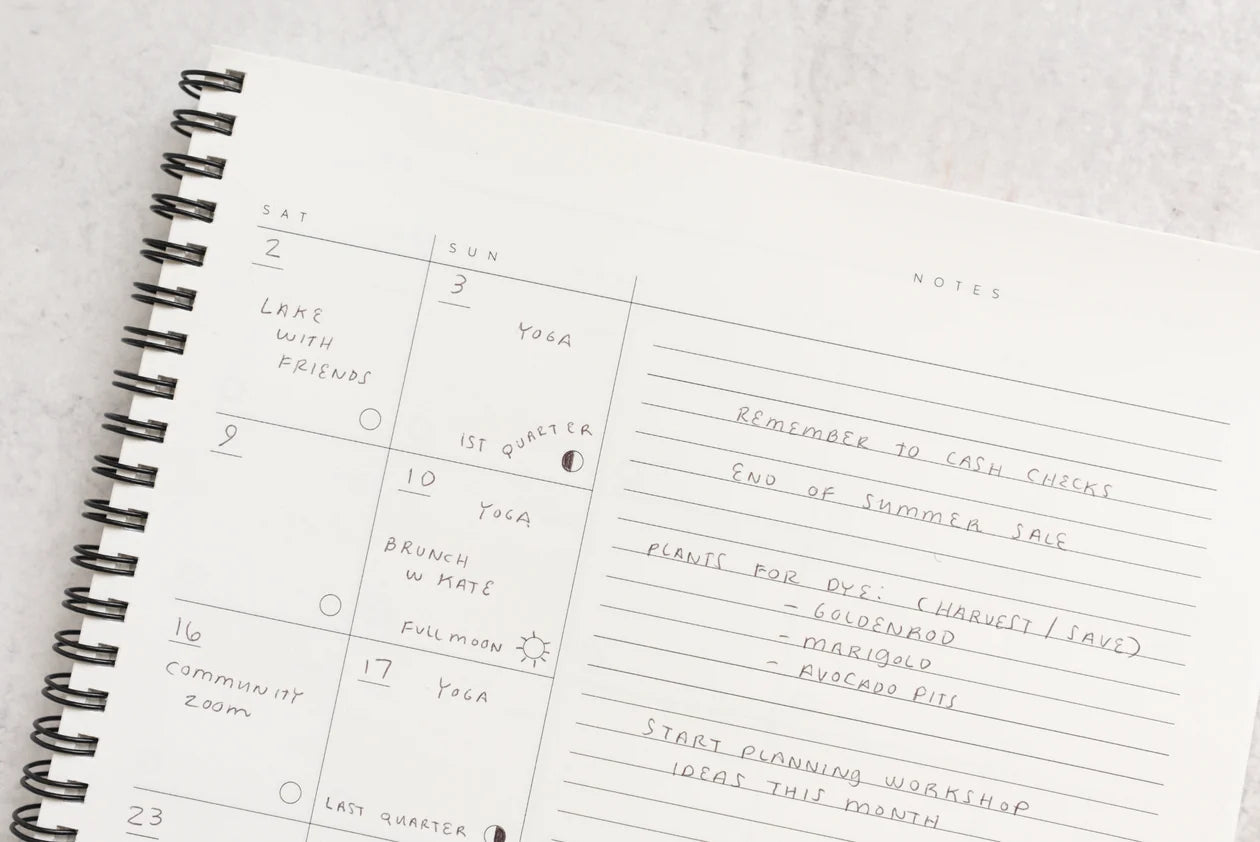 SAT
SUN
NOTES
2
LAKE
WITH
FRIENDS
3
YOGA
1ST QUARTER
9
10
YOGA
BRUNCH
W KATE
FULL MOON
16
COMMUNITY
ZOOM
17
YOGA
LAST QUARTER
23
REMEMBER TO CASH CHECKS
END OF SUMMER SALE
PLANTS FOR DYE: (HARVEST / SAVE)
- GOLDENROD
- MARIGOLD
- AVOCADO PITS
START PLANNING WORKSHOP
IDEAS THIS MONTH